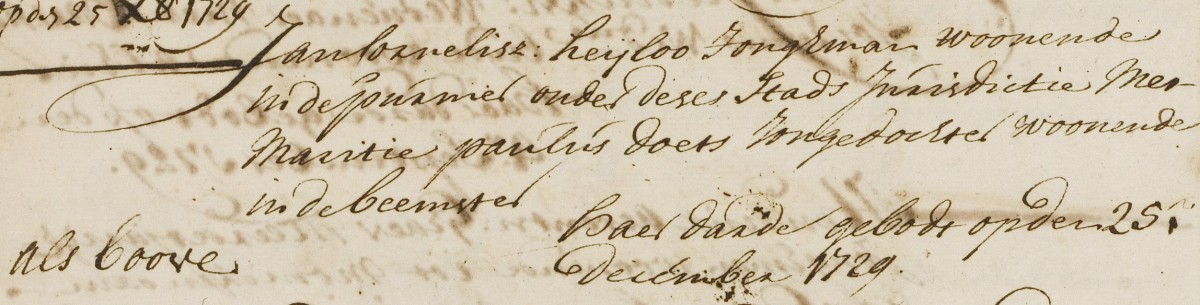 opdes 25 X8 1729
Jan Cornelisz: heijloo Jongman woonende
in de purmer onder deses Stads Jurisdictie Met
Maritie paulus doets Jongedochter woonende
in de beemster
haer darde gebodt op den 25.
als boove december 1729.